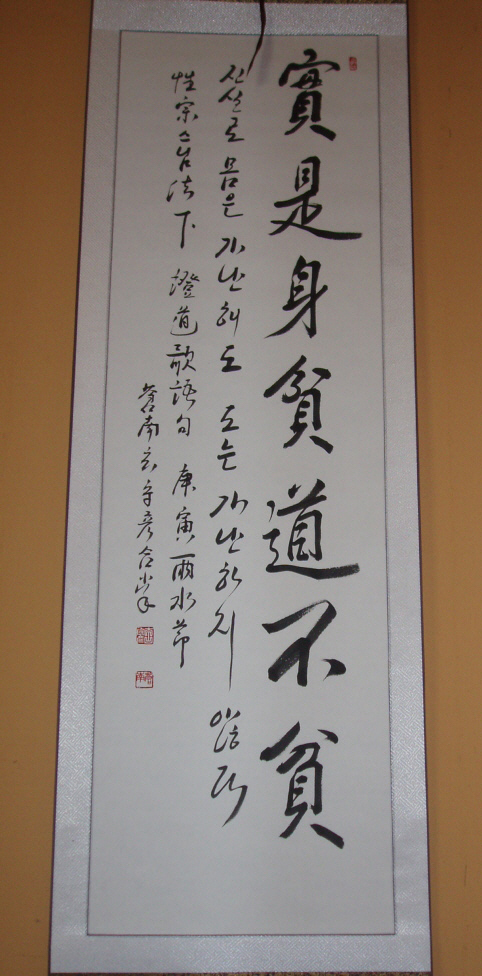 實是身貧道不貧
진실로 몸은 가난해도 도는 가난하지 않음
性宗 스님 法下 證道歌語句 庚寅 雨水節
南 合掌